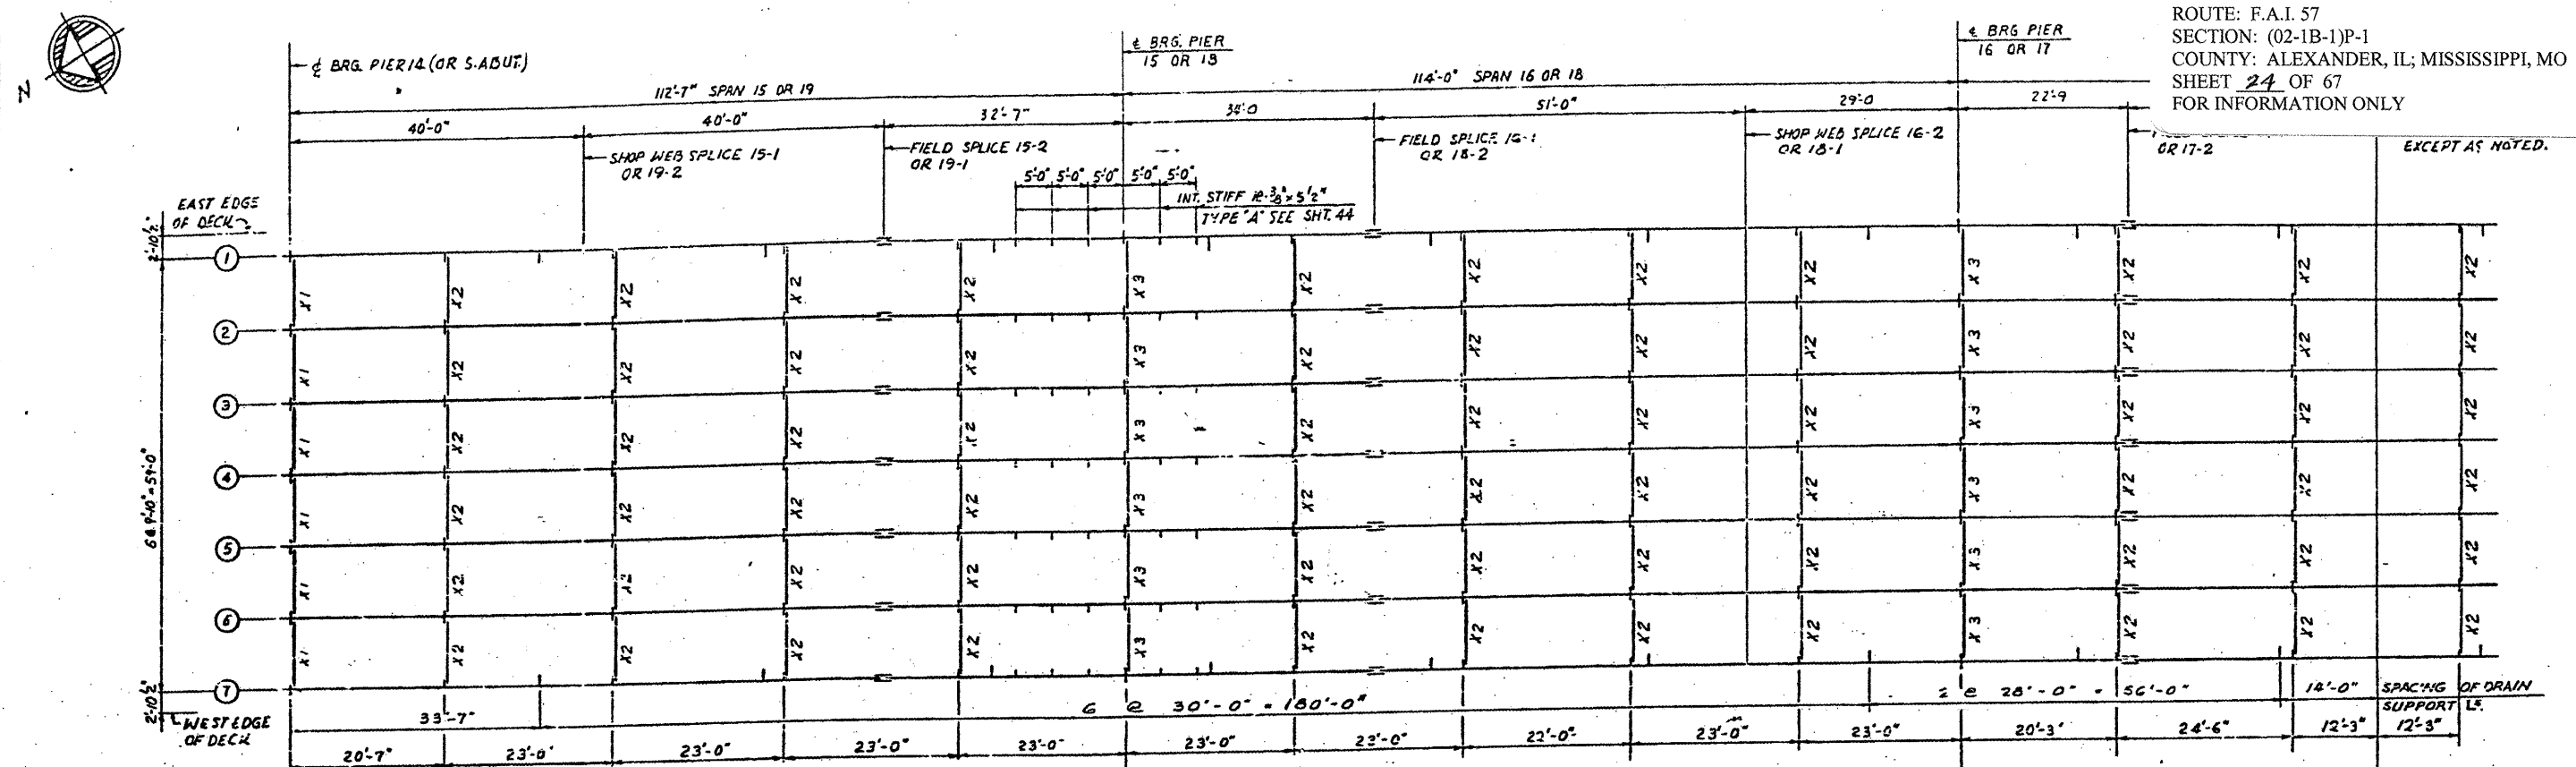 ROUTE: F.A.I. 57
SECTION: (02-1B-1)P-1
COUNTY: ALEXANDER, IL; MISSISSIPPI, MO
SHEET 24 OF 67
FOR INFORMATION ONLY
EXCEPT AS NOTED.
N
℄ BRG. PIER 14 (OR S. ABUT.)
℄ BRG. PIER
15 OR 18
℄ BRG PIER
16 OR 17
112'-7" SPAN 15 OR 19
114'-0" SPAN 16 OR 18
40'-0" 40'-0" 32'-7" 34'-0 51'-0" 29'-0 22'-9
SHOP WEB SPLICE 15-1
OR 19-2
FIELD SPLICE 15-2
OR 19-1
FIELD SPLICE 16-1
OR 18-2
SHOP WEB SPLICE 16-2
OR 18-1
OR 17-2
5'-0" 5'-0" 5'-0" 5'-0" 5'-0"
INT. STIFF ℞-3/8"x5 1/2"
TYPE "A" SEE SHT. 44
EAST EDGE
OF DECK
2'-10 1/2"
1
X1 X2 X2 X2 X2 X3 X2 X2 X2 X2 X3 X2 X2 X2
2
X1 X2 X2 X2 X2 X3 X2 X2 X2 X2 X3 X2 X2 X2
3
X1 X2 X2 X2 X2 X3 X2 X2 X2 X2 X3 X2 X2 X2
4
X1 X2 X2 X2 X2 X3 X2 X2 X2 X2 X3 X2 X2 X2
5
X1 X2 X2 X2 X2 X3 X2 X2 X2 X2 X3 X2 X2 X2
6
X1 X2 X2 X2 X2 X3 X2 X2 X2 X2 X3 X2 X2 X2
7
6@9'-10"=59'-0"
2'-10 1/2"
WEST EDGE
OF DECK
33'-7" 6 @ 30'-0" = 180'-0" 2 @ 28'-0" = 56'-0" 14'-0" SPACING OF DRAIN
SUPPORT Ls.
20'-7" 23'-0" 23'-0" 23'-0" 23'-0" 23'-0" 22'-0" 23'-0" 23'-0" 20'-3" 24'-6" 12'-3" 12'-3"